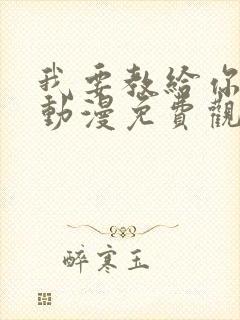 我要教給你
動漫免費觀
醉寒玉